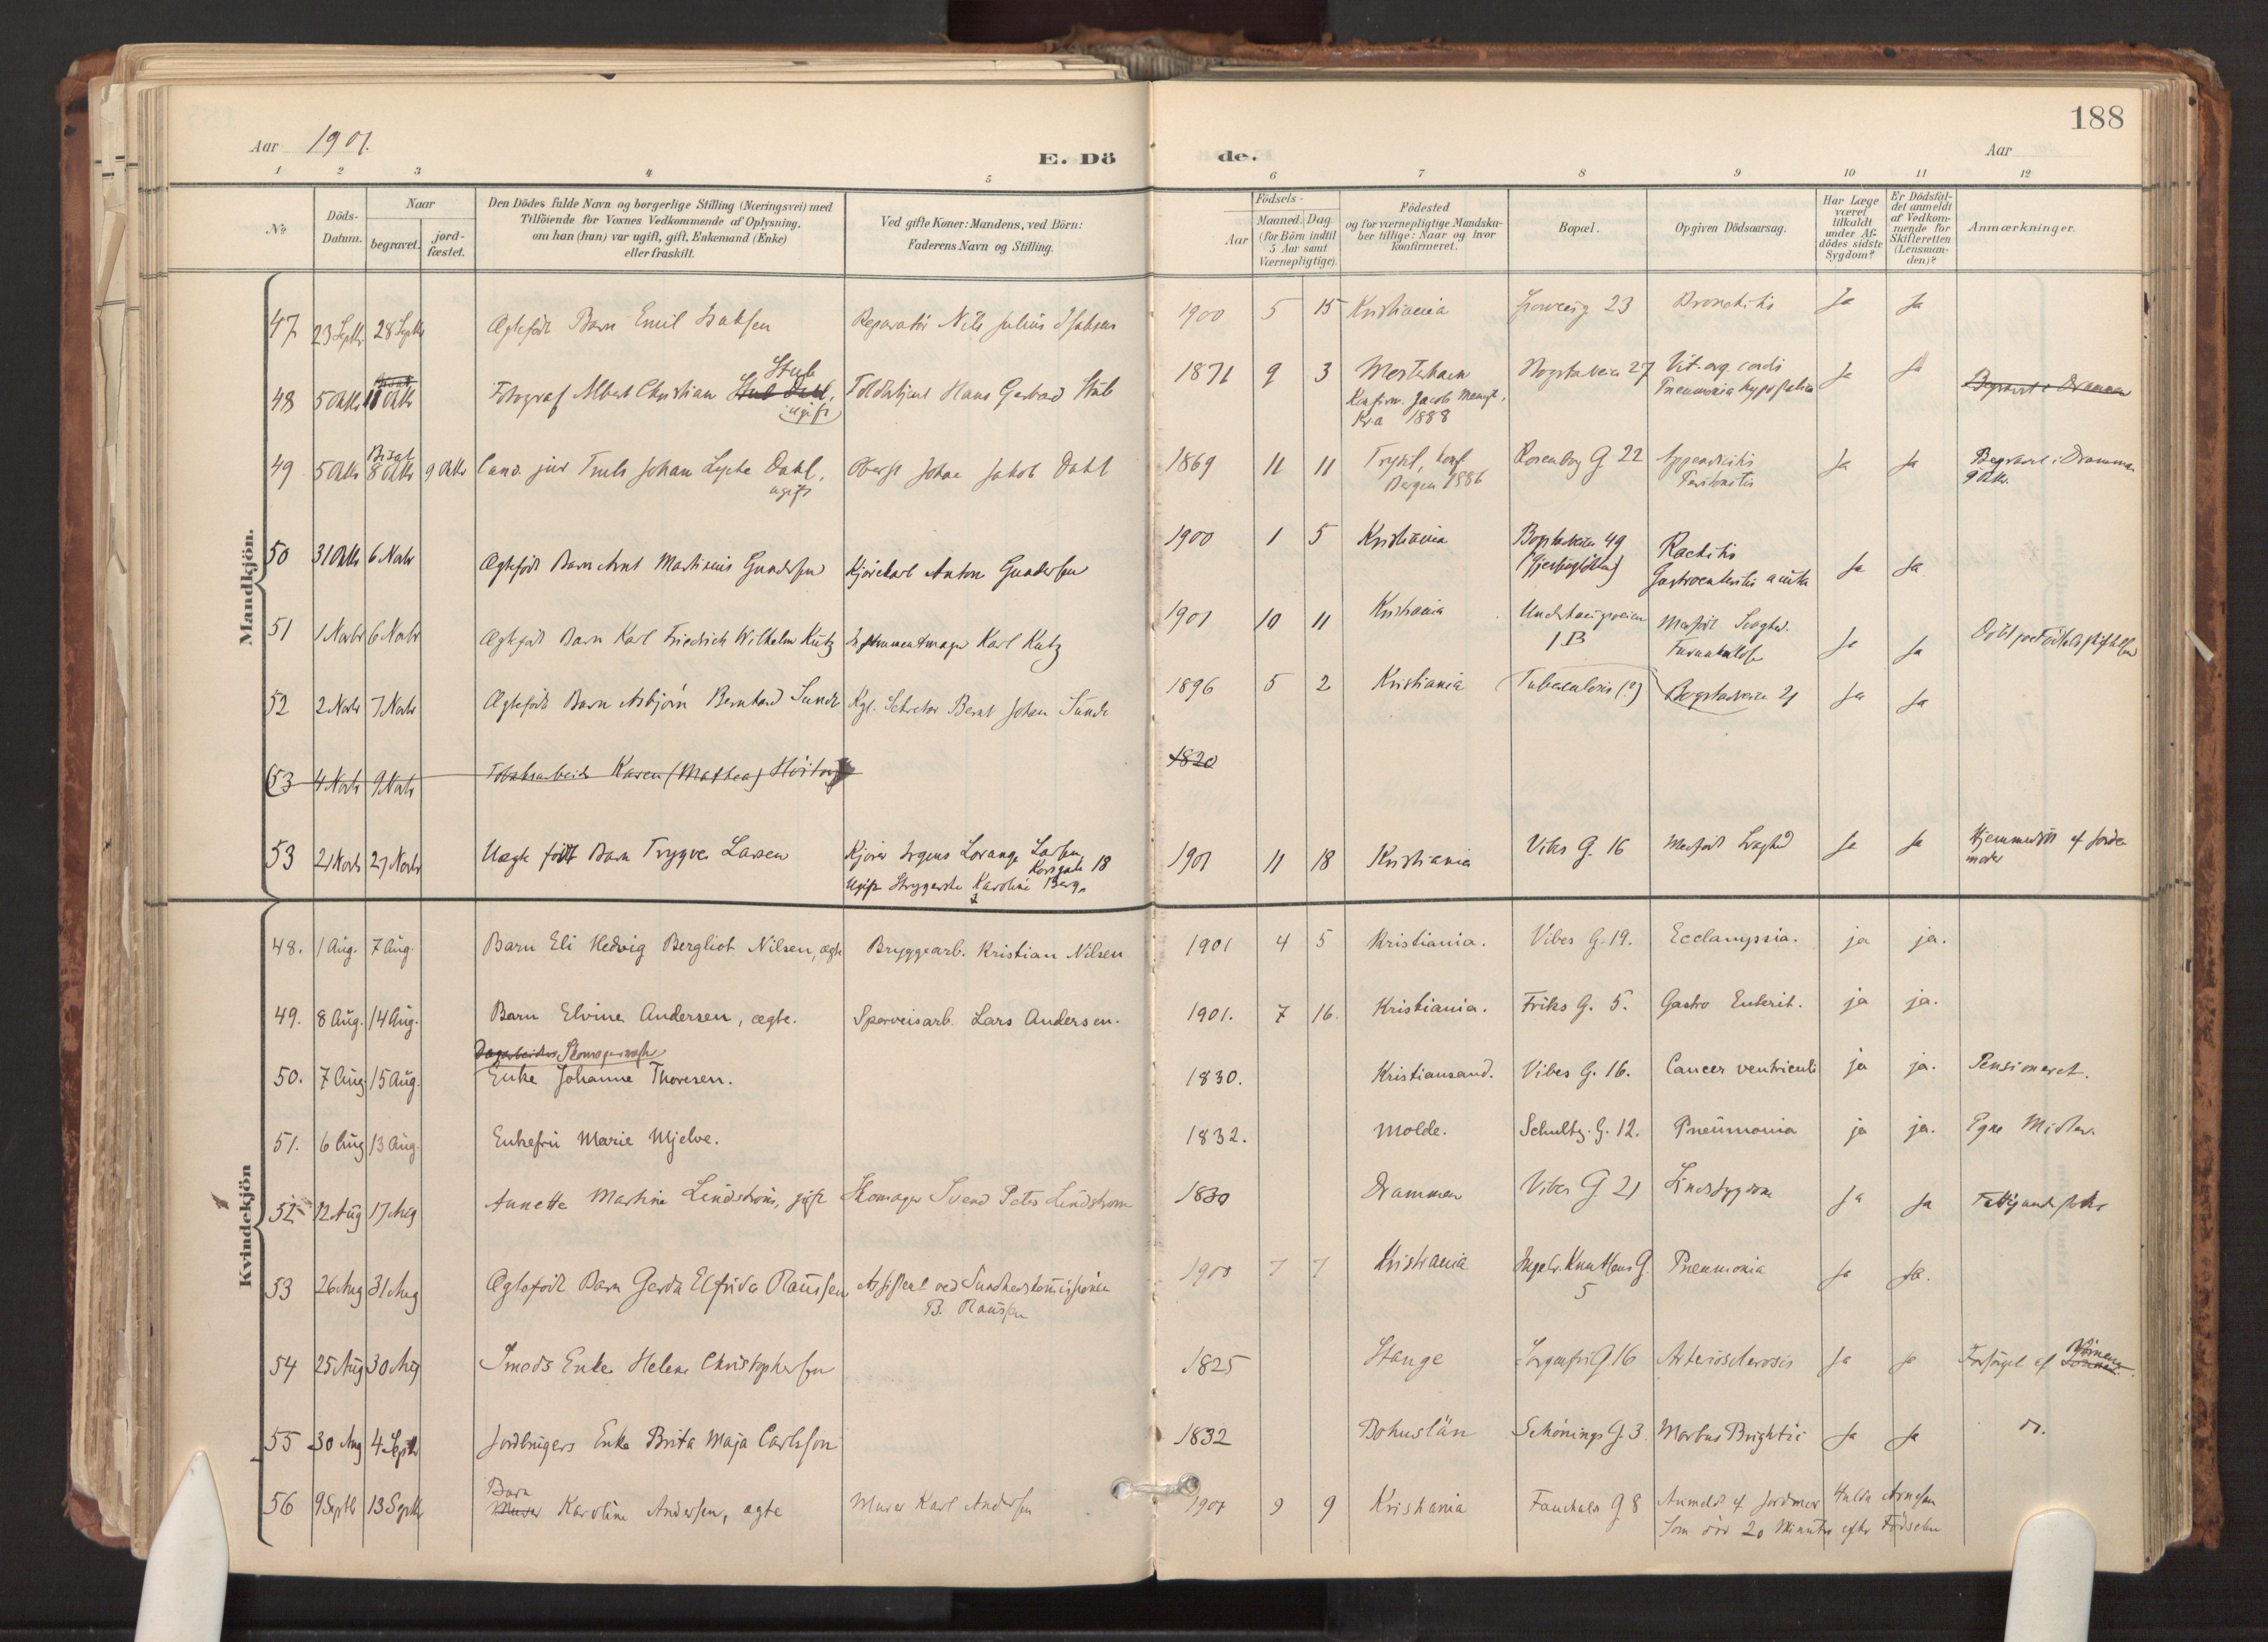 188
Aar 1901.
E. Dö
de.
Aar
1 2 3 4 5 6 7 8 9 10 11 12
№
Döds-Datum.
Naar
begravet.
jord-fæstet.
Den Dödes fulde Navn og borgerlige Stilling (Næringsvei) med
Tilföiende for Voxnes Vedkommende af Oplysning,
om han (hun) var ugift, gift, Enkemand (Enke)
eller fraskilt.
Ved gifte Koner: Mandens, ved Börn:
Faderens Navn og Stilling.
Födsels-
Aar
Maaned. Dag.
(for Börn indtil
5 Aar samt
Værnepligtige).
Födested
og for værnepligtige Mandska-
ber tillige: Naar og hvor
konfirmeret.
Bopæl.
Opgiven Dödsaarsag.
Har Læge
været
tilkaldt
under Af-
dödes sidste
Sygdom?
Er Dödsfal-
det anmeldt
af Vedkom-
mende for
Skifteretten
(Lensman-
den)?
Anmærkninger.
Mandkjön.
47 23 Septbr 28 Septbr Ægtefødt Barn Emil Isaksen Reparatør Nils Julius Isaksen 1900 5 15 Kristiania 23 Bronchitis Ja Ja
48 5 Oktbr Oktbr Fotograf Albert Christian Stub Dahl, Stub ugift Hans Gerhard Stub 1871 9 3 Konfirm. Jacob Menigh. Kr.a 1888 Bogstadveien 27 Vit. org. cordis Pneumonia hypostatica Ja Ja Begravet i Drammen
49 5 Oktbr Bisat 8 Oktbr 9 Oktbr Cand. jur Truls Johan Lyche Dahl, ugift Oberst Johan Jakob Dahl 1869 11 11 Trysil, konf. Bergen 1886 Rosenborg G. 22 Appendicitis Peritonitis Ja Ja Begravet i Drammen 9 Oktbr.
50 31 Oktbr 6 Novbr Ægtefødt Barn Arnt Martinius Gundersen Kjørekarl Anton Gundersen 1900 1 5 Kristiania Bogstadveien 49 Rachitis Gastroenteritis acuta Ja Ja
51 1 Novbr 6 Novbr Ægtefødt Barn Karl Friedrich Wilhelm Kutz Instrumentmager Karl Kutz 1901 10 11 Kristiania Underhaugsveien 1 B Medfødt Svaghed. Furunkulose Ja Ja Døbt paa Fødselsstiftelsen
52 2 Novbr 7 Novbr Ægtefødt Barn Asbjørn Bernhard Sunde Kgl. Sekretær Bernt Johan Sunde 1896 5 2 Kristiania Tuberculosis (?) Bogstadveien 21 Ja Ja
53 4 Novbr 9 Novbr Tobaksarbeider Karen (Mathea) 1820
53 21 Novbr 27 Novbr Uægte født Barn Trygve Larsen Kjører Jørgens Lorange Larsen, Korsgade 18
Ugift Strygerske Karoline Berg. 1901 11 18 Kristiania Vibes G. 16 Medfødt Svaghed Ja Ja Hjemmedøbt af Jordemoder
Kvindekjön
48. 1 Aug. 7 Aug. Barn Eli Hedvig Bergliot Nilsen, ægte Bryggearb. Kristian Nilsen 1901 4 5 Kristiania. Vibes G. 19. Ecclampsia. ja ja.
49. 8 Aug. 14 Aug. Barn Elvine Andersen, ægte. Sporveisarb. Lars Andersen. 1901. 7 16. Kristiania. Friks G. 5. Gastro Enterit. ja ja.
50. 7 Aug. 15 Aug. Enke Johanne Thoresen. 1830. Kristiansand. Vibes G. 16. Cancer ventriculi ja ja. Pensioneret.
51. 6 Aug 13 Aug. Enkefru Marie Mjelve. 1832. Molde. Schultz. G. 12. Pneumonia ja ja. Egne Midler.
52 12 Aug 17 Aug Annette Martine Lindstrøm, gift Skomager Svend Peter Lindstrøm 1830 Drammen Vibes G 21 Sindssygdom Ja Ja Fattigunderstøttet
53 26 Aug 31 Aug Ægtefødt Barn Gerda Elfrida Paulsen Assistent ved Sundhedskommissionen B. Paulsen 1900 7 7 Kristiania Ingebr. Knutsens G. 5 Pneumonia Ja Ja.
54 25 Aug 30 Aug Smeds Enke Helene Christophersen 1825 Stange Sorgenfri G 16 Arteriosclerosis Ja Ja Forsørget af Børnene
55 30 Aug 4 Septbr Jordbrugers Enke Brita Maja Carlsson 1832 Bohuslän Schönings G. 3. Morbus Brightii Ja Ja
56 9 Septbr 13 Septbr Barn Karoline Andersen, ægte Murer Karl Andersen 1901 9 9 Kristiania Fauchalds G 8 Anmeldt af Jordmor Hulda Arnesen
Som død 20 Minutter efter Fødselen